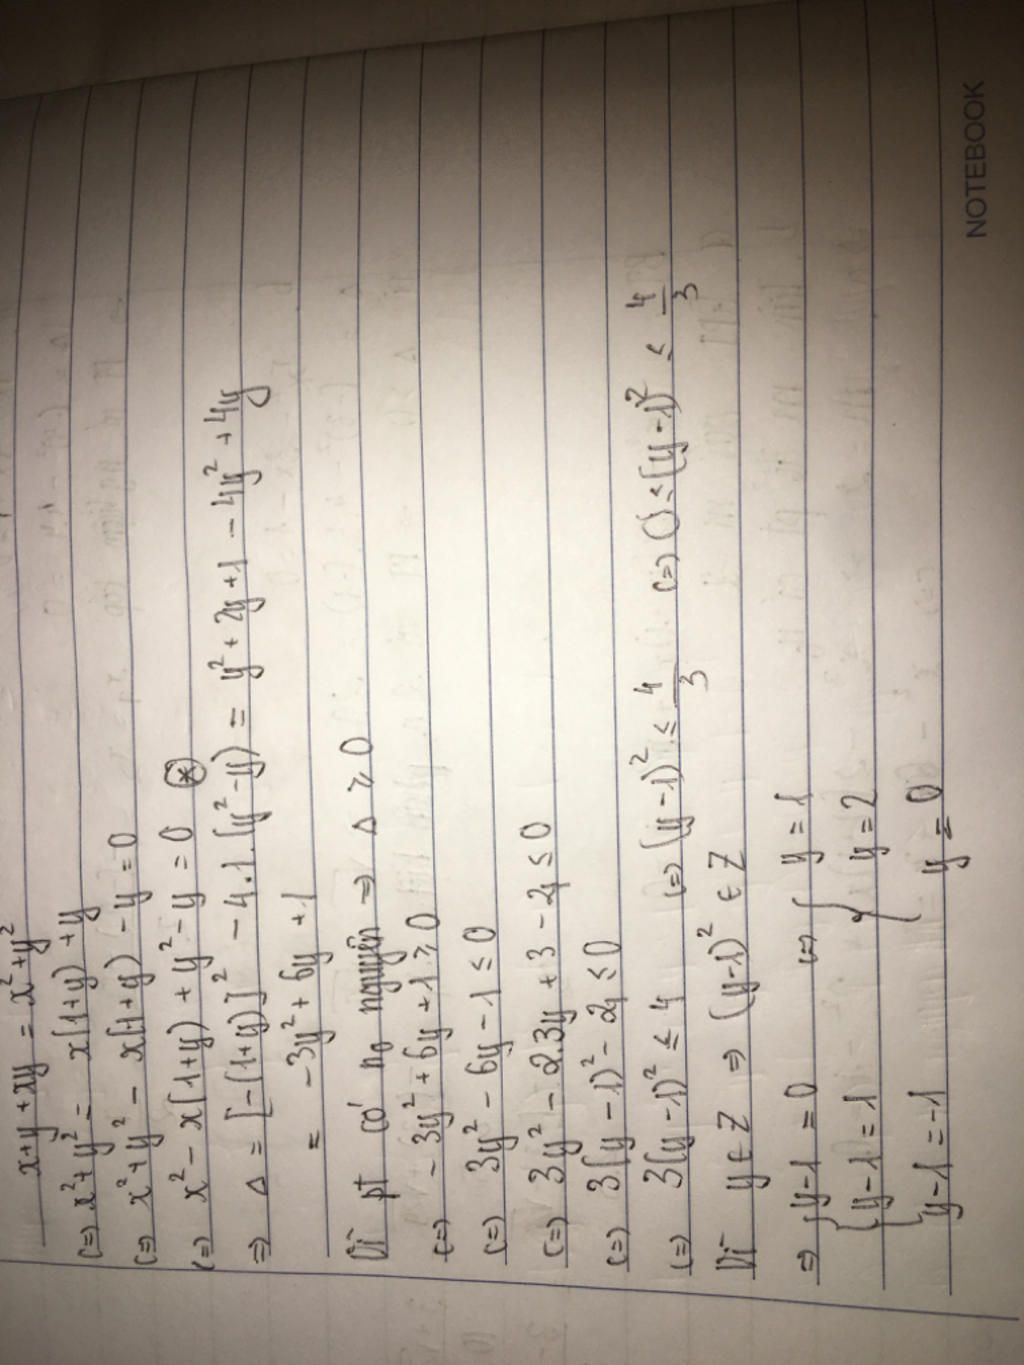 x+y+xy = x²+y²
(=) x²+y² = x(1+y) +y
(=) x²+y² - x(1+y) -y = 0
(=) x² - x(1+y) + y² - y = 0 (*)
=> Δ = [-(1+y)]² - 4.1.(y²-y) = y²+2y+1 - 4y²+4y
= -3y²+6y+1
Vì pt có n₀ nguyên => Δ ≥ 0
(=) -3y²+6y+1 ≥ 0
(=) 3y² - 6y - 1 ≤ 0
(=) 3y² - 2.3y + 3 - 4 ≤ 0
(=) 3(y-1)² - 4 ≤ 0
(=) 3(y-1)² ≤ 4 (=) (y-1)² ≤ 4/3 (=) 0 ≤ (y-1)² ≤ 4/3
Vì y ∈ Z => (y-1)² ∈ Z
=> { y-1=0 (=) { y=1
y-1=1 y=2
y-1=-1 y=0
NOTEBOOK